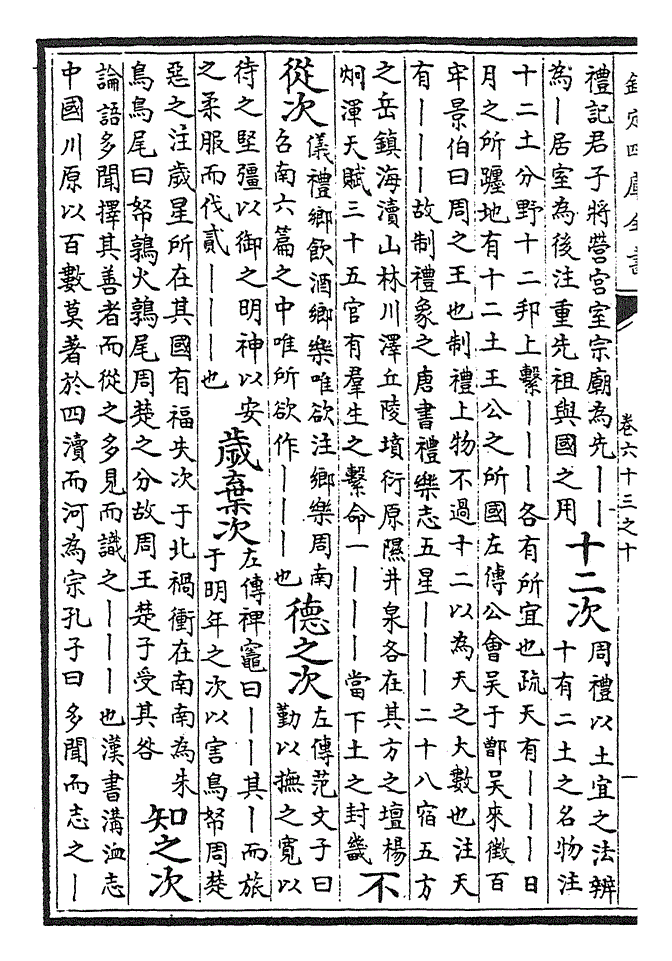 欽定四庫全書
卷六十三之十
禮記君子將營宫室宗廟為先——
為—居室為後注重先祖與國之用
十二次
周禮以土宜之法辨
十有二土之名物注
十二土分野十二邦上繫———各有所宜也疏天有———日
月之所躔地有十二土王公之所國左傳公會吴于鄫吴來徵百
牢景伯曰周之王也制禮上物不過十二以為天之大數也注天
有———故制禮象之唐書禮樂志五星———二十八宿五方
之岳鎮海瀆山林川澤丘陵墳衍原隰井泉各在其方之壇楊
炯渾天賦三十五官有羣生之繫命一———當下土之封畿
不
從次
儀禮鄉飲酒鄉樂唯欲注鄉樂周南
召南六篇之中唯所欲作———也
德之次
左傳范文子曰
勤以撫之寛以
待之堅彊以御之明神以安
之柔服而伐貳———也
歲棄次
左傳裨竈曰——其—而旅
于明年之次以害鳥帑周楚
惡之注歲星所在其國有福失次于北禍衝在南南為朱
鳥鳥尾曰帑鶉火鶉尾周楚之分故周王楚子受其咎
知之次
論語多聞擇其善者而從之多見而識之———也漢書溝洫志
中國川原以百數莫著於四瀆而河為宗孔子曰多聞而志之—